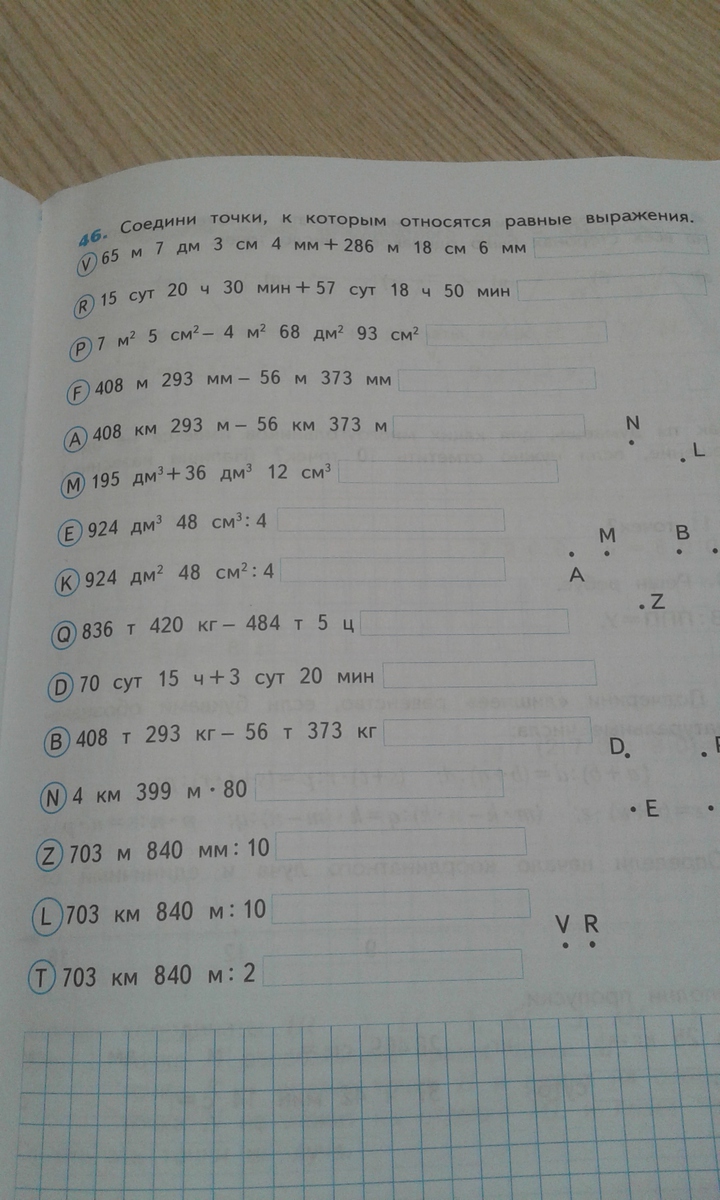 46. Соедини точки, к которым относятся равные выражения.
V 65 м 7 дм 3 см 4 мм + 286 м 18 см 6 мм
R 15 сут 20 ч 30 мин + 57 сут 18 ч 50 мин
P 7 м² 5 см² – 4 м² 68 дм² 93 см²
F 408 м 293 мм – 56 м 373 мм
A 408 км 293 м – 56 км 373 м
N
L
M 195 дм³ + 36 дм³ 12 см³
E 924 дм³ 48 см³ : 4
M B
K 924 дм² 48 см² : 4
A
Z
Q 836 т 420 кг – 484 т 5 ц
D 70 сут 15 ч + 3 сут 20 мин
B 408 т 293 кг – 56 т 373 кг
D
N 4 км 399 м · 80
E
Z 703 м 840 мм : 10
L 703 км 840 м : 10
V R
T 703 км 840 м : 2